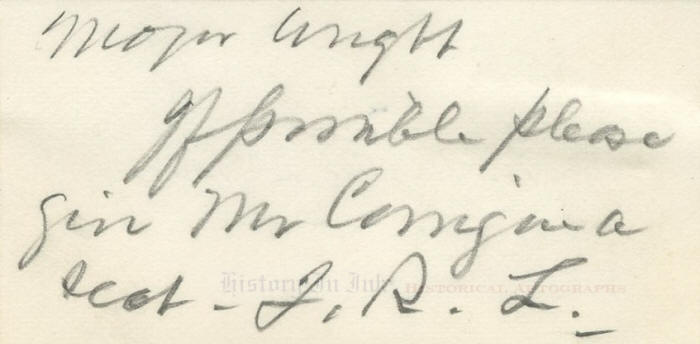 Major Wright
If possible please
give Mr Corrigan a
seat - J. R. L.
History In Ink HISTORICAL AUTOGRAPHS